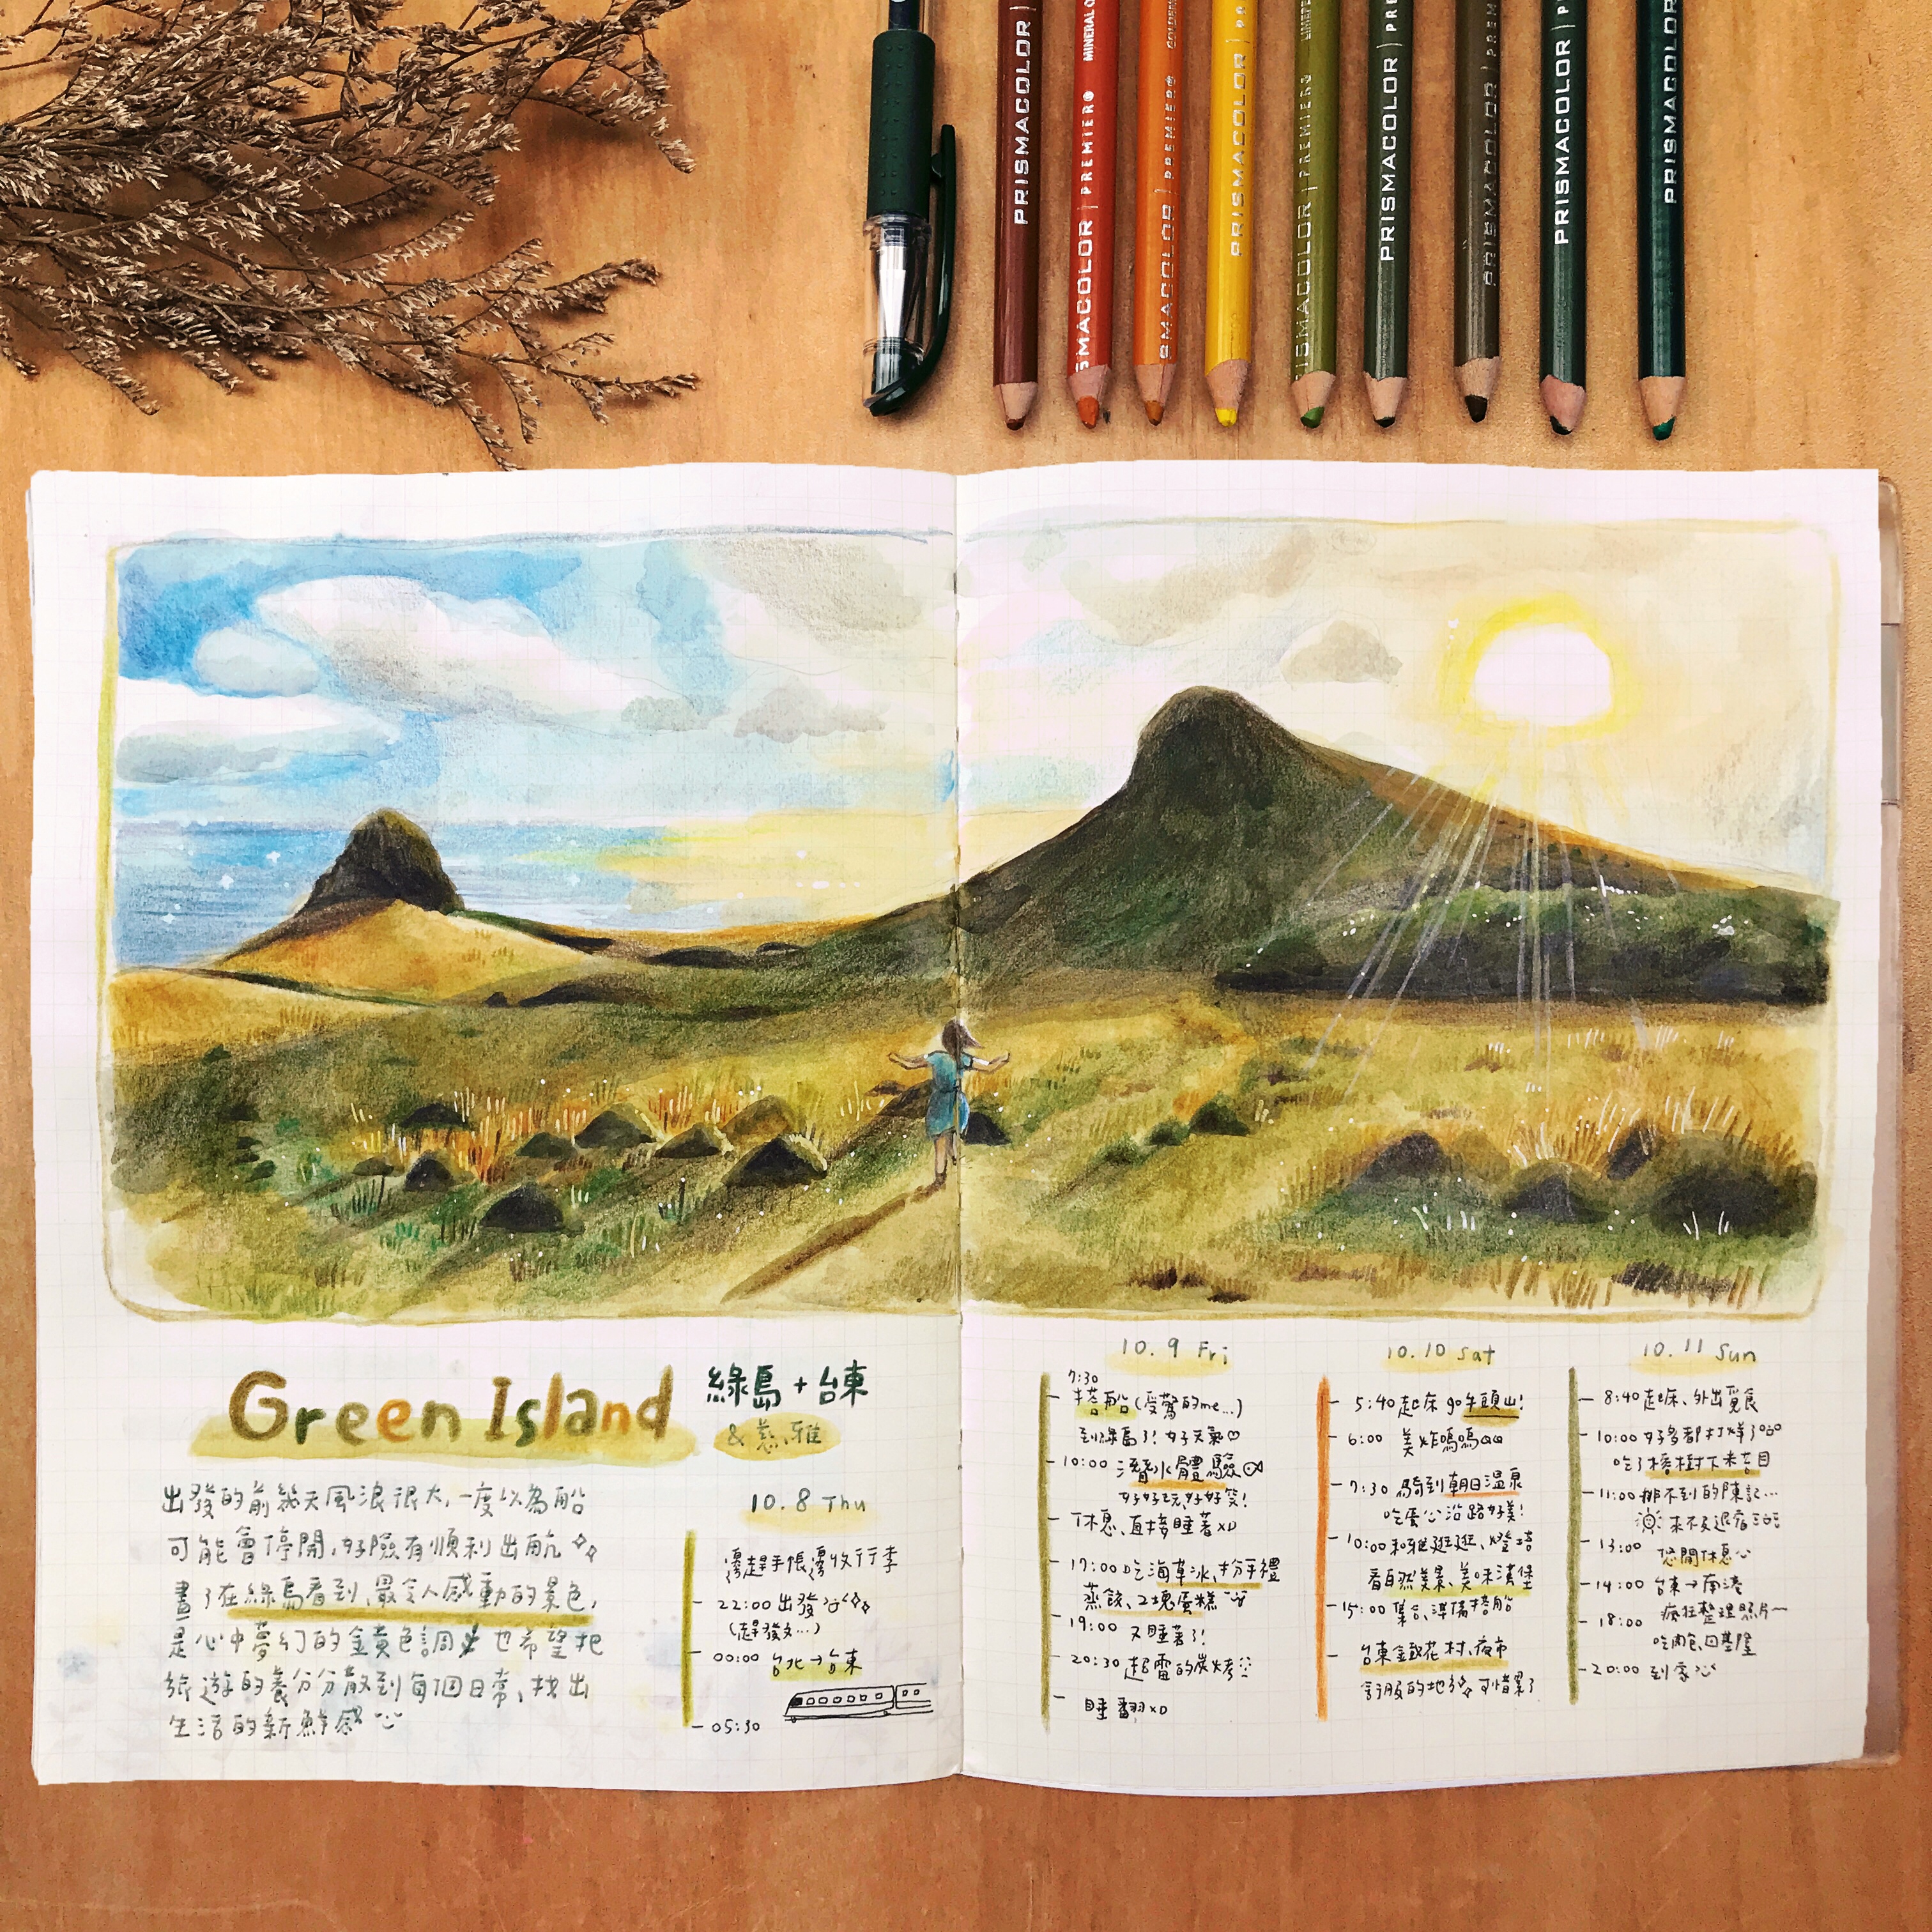 PRISMACOLOR |
SMACOLOR | PREMIER MINERAL O
SMACOLOR | PREMIER
PRISMACOLOR | P
PRISMACOLOR | PREMIER
PRISMACOLOR | PRE
PRISMACOLOR | PREM
PRISMACOLOR | P
PRISMACOLOR
Green Island 綠島+台東
& 慈雅
出發的前幾天風浪很大,一度以為船
可能會停開,好險有順利出航
畫了在綠島看到、最令人感動的景色,
是心中夢幻的金黃色調 也希望把
旅遊的養分分散到每個日常、找出
生活的新鮮感
10.8 Thu
邊趕手帳邊收行李
22:00 出發
(趕發文...)
00:00 台北→台東
05:30
10.9 Fri
7:30
搭船(受驚的me...)
到綠島了!好天氣♡
10:00 潛水體驗
好好玩、好好笑!
休息、直接睡著XD
17:00 吃海草冰、扮手禮
蒸餃、2塊蛋糕
19:00 又睡著了!
20:30 超雷的炭烤
睡翻XD
10.10 Sat
5:40 起床 go牛頭山!
6:00 美炸嗚嗚QQ
7:30 騎到朝日溫泉
吃蛋 沿路好美!
10:00 和雅逛逛、燈塔
看自然美景、美味漢堡
15:00 集合、準備搭船
台東鐵花村、夜市
舒服的地 可惜累了
10.11 Sun
8:40 起床、外出覓食
10:00 好多都打烊了
吃了榕樹下米苔目
11:00 排不到的陳記...
來不及退宿
13:00 悠閒休息
14:00 台東→南港
瘋狂整理照片~
18:00 吃肉包、回基隆
20:00 到家